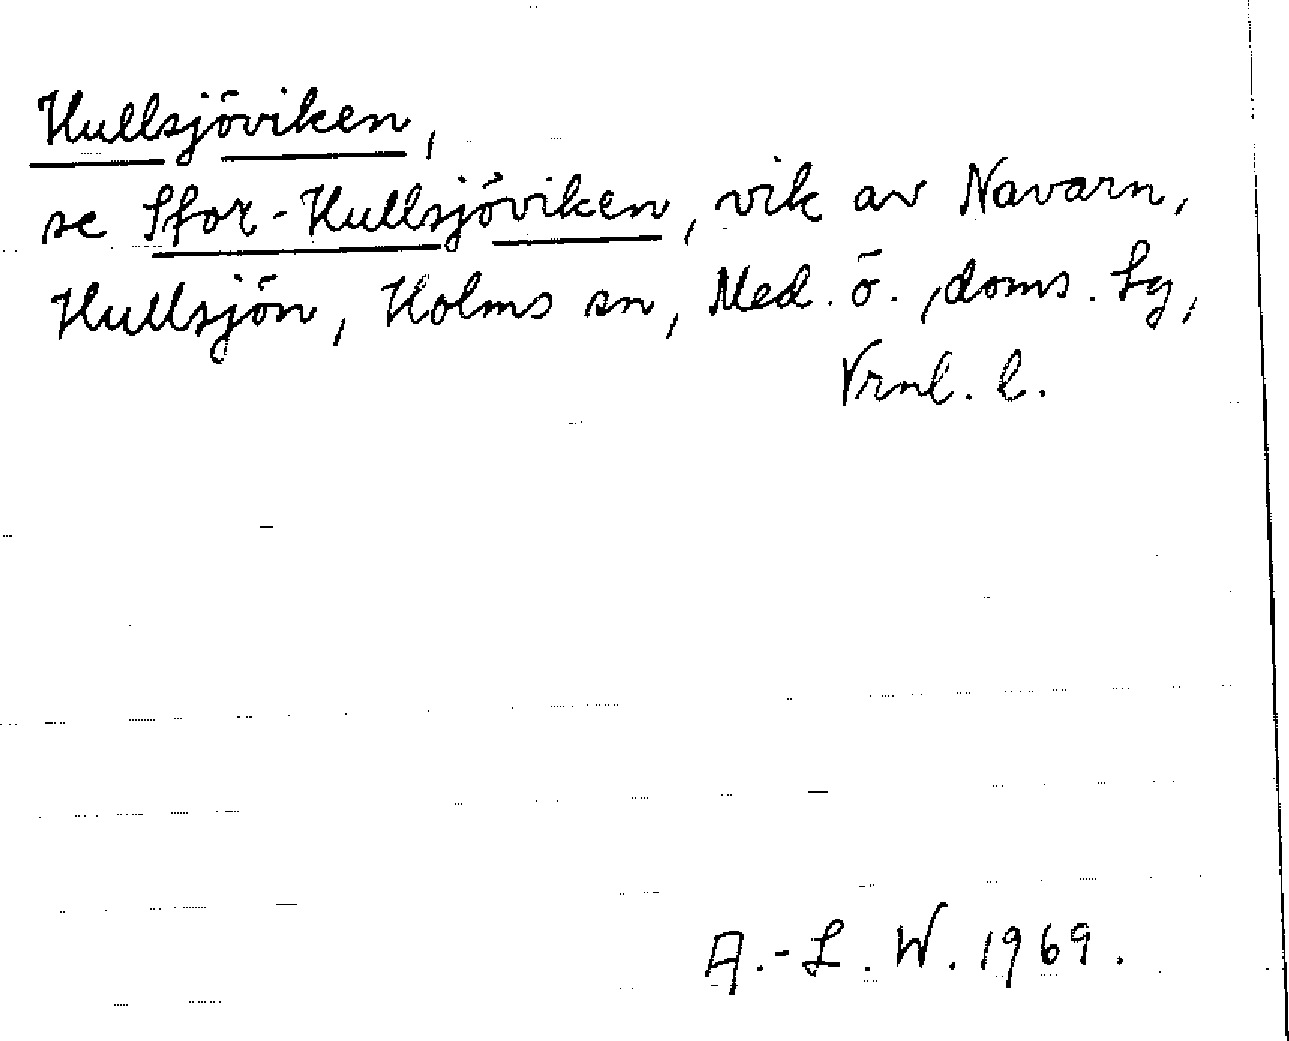 Hullsjöviken,
se Stor-Hullsjöviken, vik av Navarn,
Hullsjön, Holms sn, Med. ö., doms. lg,
Vrnl. l.
A.-L. W. 1969.